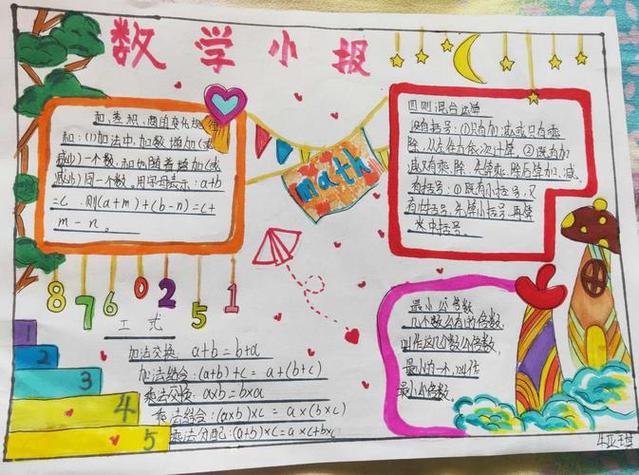 数学小报
和、差、积、商的变化规律
和：(1)加法中,加数增加(或
减少)一个数,和也随着增加(或
减少)同一个数。用字母表示：a+b
=c 则(a+m)+(b-n)=c+
m-n。
math
四则混合运算
没有括号：①只有加、减或只有乘
除，从左往右依次计算 ②既有加
减又有乘、除，先算乘、除后算加、减。
有括号：①既有小括号,又
有中括号,先算小括号,再算
中括号。
8 7 6 0 2 5 1
公式
加法交换：a+b=b+a
加法结合：(a+b)+c=a+(b+c)
乘法交换：a×b=b×a
乘法结合：(a×b)×c=a×(b×c)
乘法分配：(a+b)×c=a×c+b×c
1
2
3
4
5
最小公倍数
几个数公有的倍数,
叫作这几个数公倍数,
最小的一个,叫作
最小公倍数。